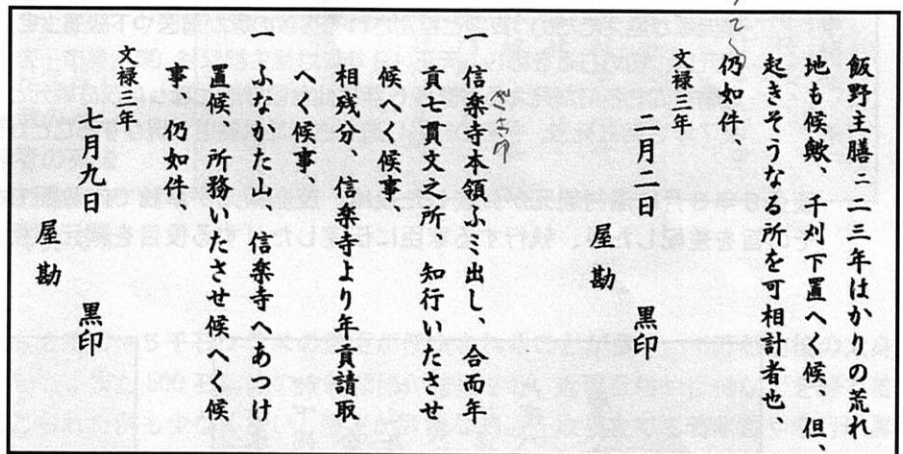 飯野主膳ニ二三年はかりの荒れ
地も候歟、千刈下置へく候、但、
起きそうなる所を可相計者也、
仍如件、
文禄三年
二月二日 屋勘 黒印
一 信楽寺本領ふミ出し、合而年
貢七貫文之所、知行いたさせ
候へく候事、
相残分、信楽寺より年貢請取
へく候事、
一 ふなかた山、信楽寺へあつけ
置候、所務いたさせ候へく候
事、仍如件、
文禄三年
七月九日 屋勘 黒印